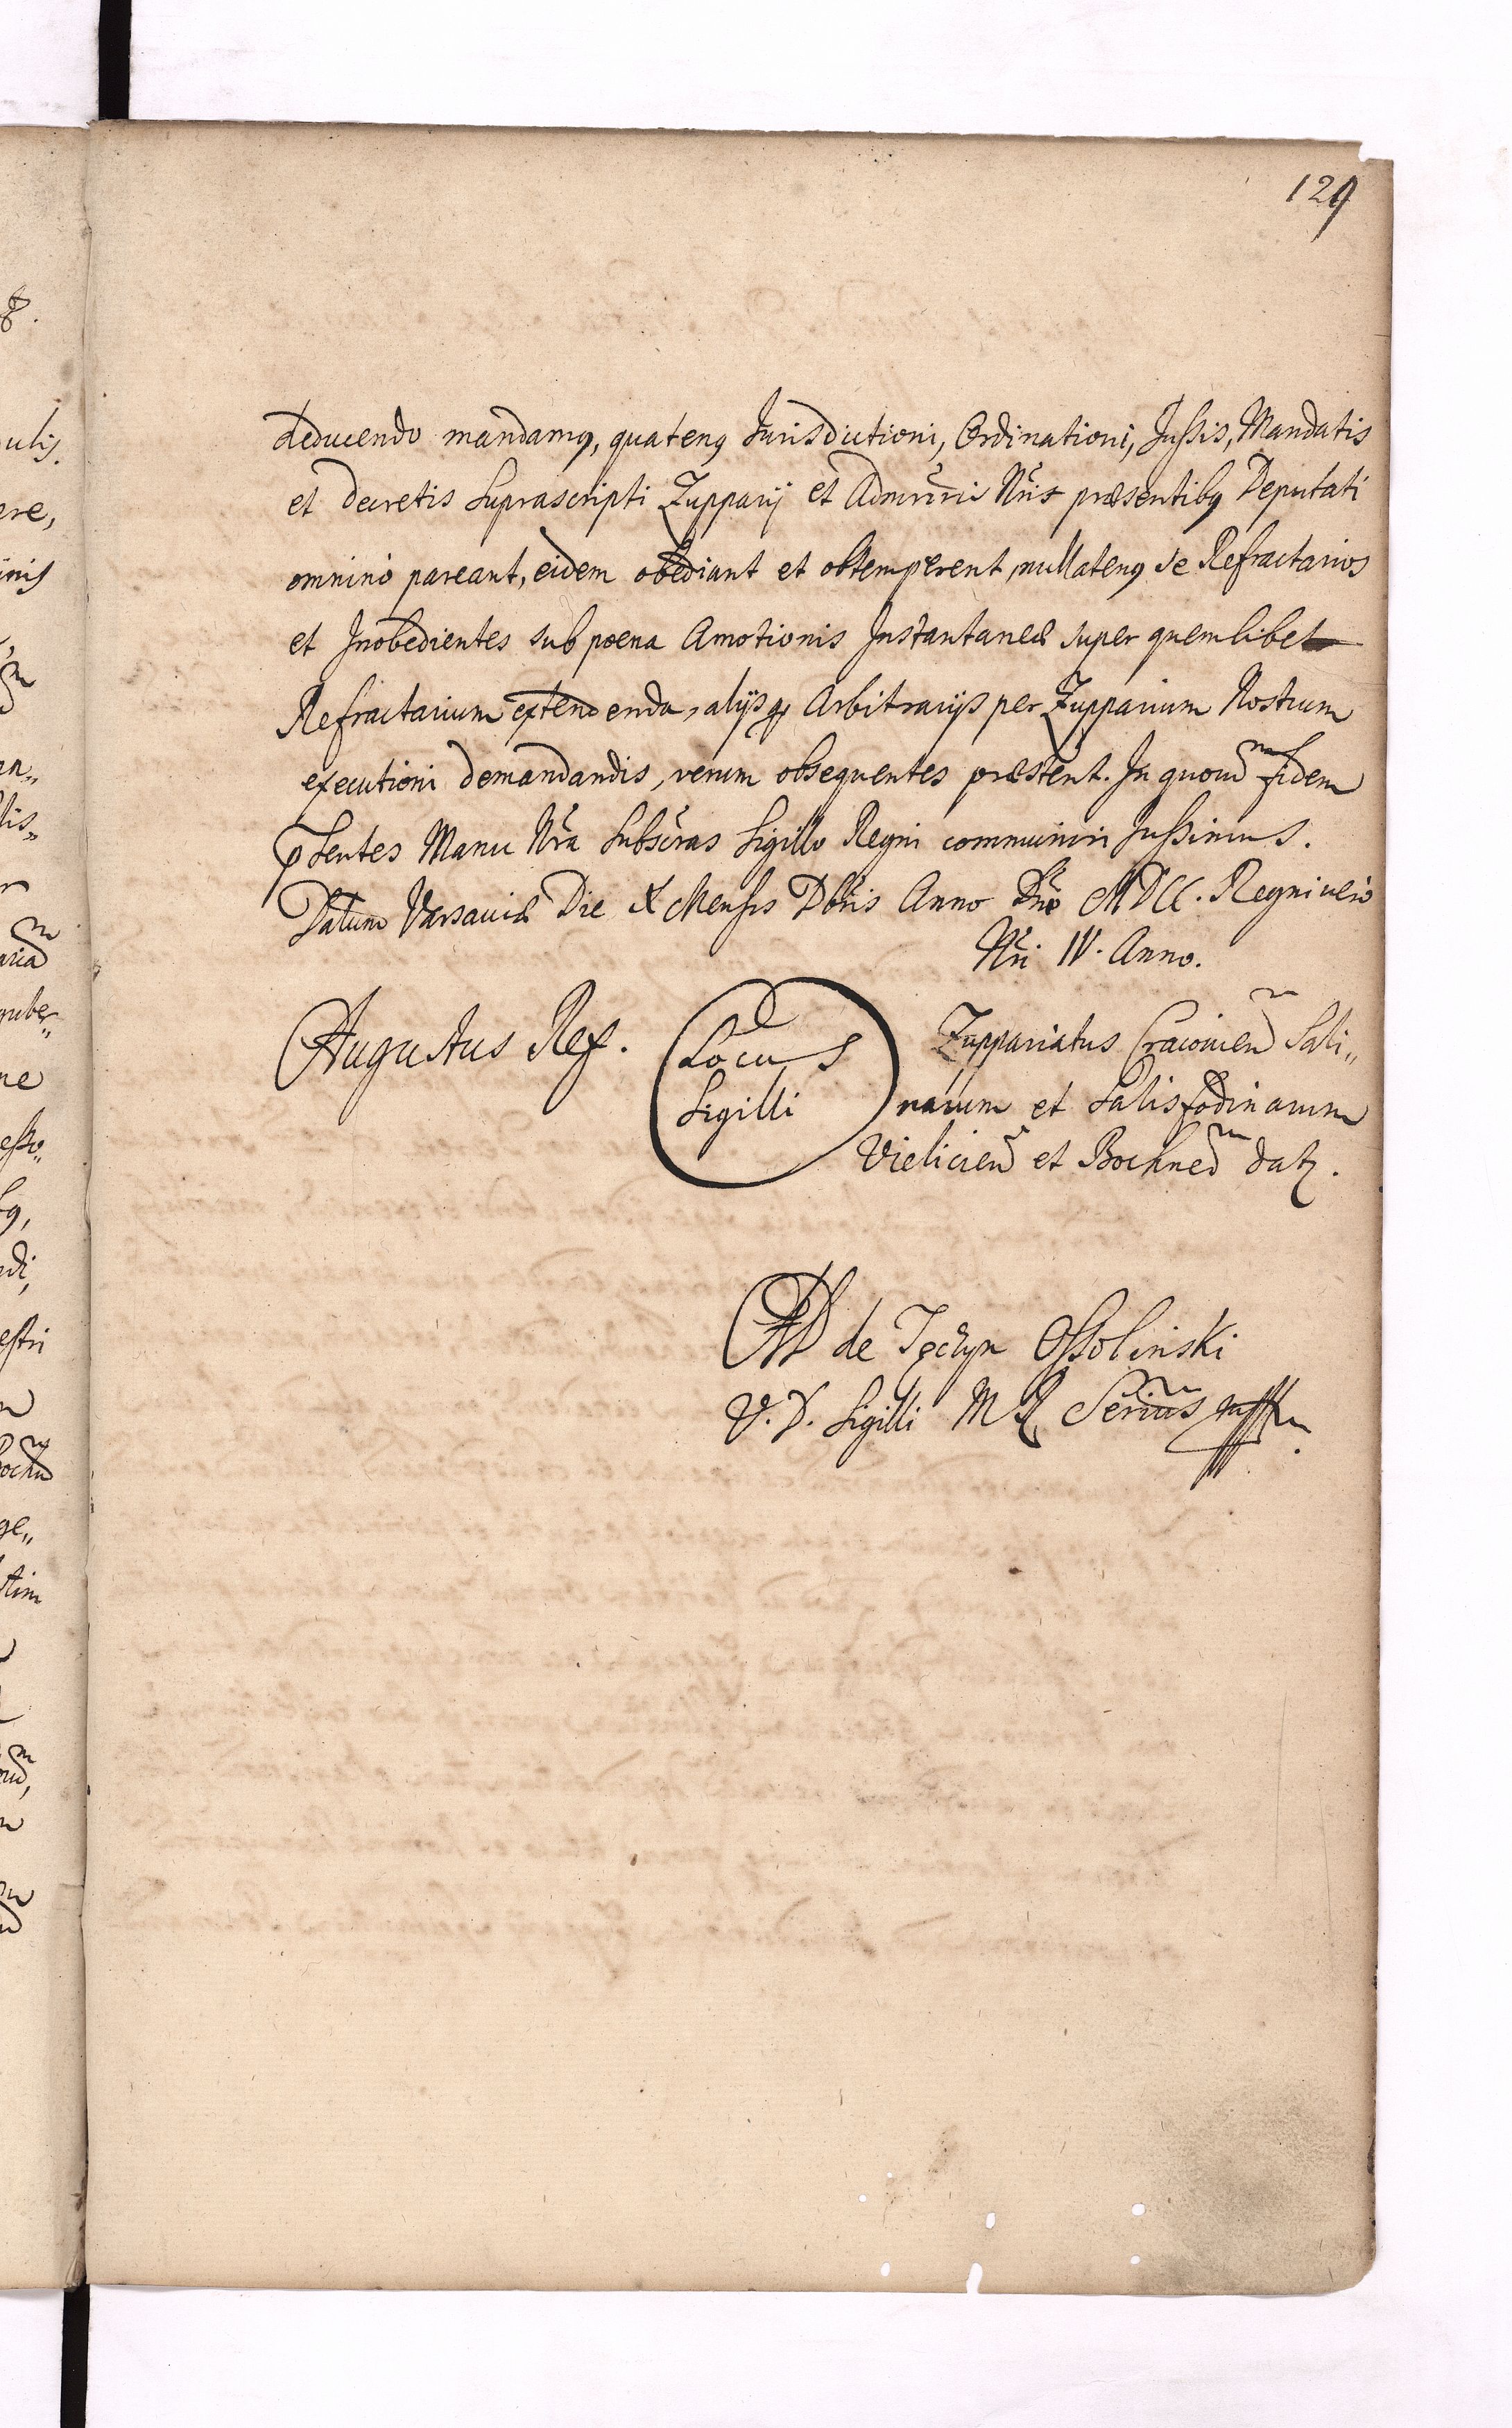 129
deducendo mandamq, quatenq Jurisdictioni, Ordinationi, Jussis, Mandatis
et decretis Suprascripti Zupparij et Admrri Nris præsentibq Deputati
omnino pareant, eidem obediant et obtemperent, nullatenq se Refractarios
et Inobedientes sub poena Amotionis Instantaneæ super quemlibet
Refractarium extendenda, alijsq Arbitrarijs per Zupparium Nostrum
executioni demandandis, verum obsequentes præstent. In quorũ fidem
pSentes Manu Nra Subscras Sigillo Regni communiri Jussimus.
Datum Varsaviæ Die X Mensis Xbris Anno Dni MDCC. Regni verò
Nri IV. Anno.
Augustus Rex.
Locus
Sigilli
Zuppariatus Cracovien Sali„
narum et Salisfodinarum
Vielicien et Bochnen datq.
de Tęczyn Ossoliński
V. D. Sigilli M R Seriús
ulis.
ere,
an„
lis„
ne
ge„